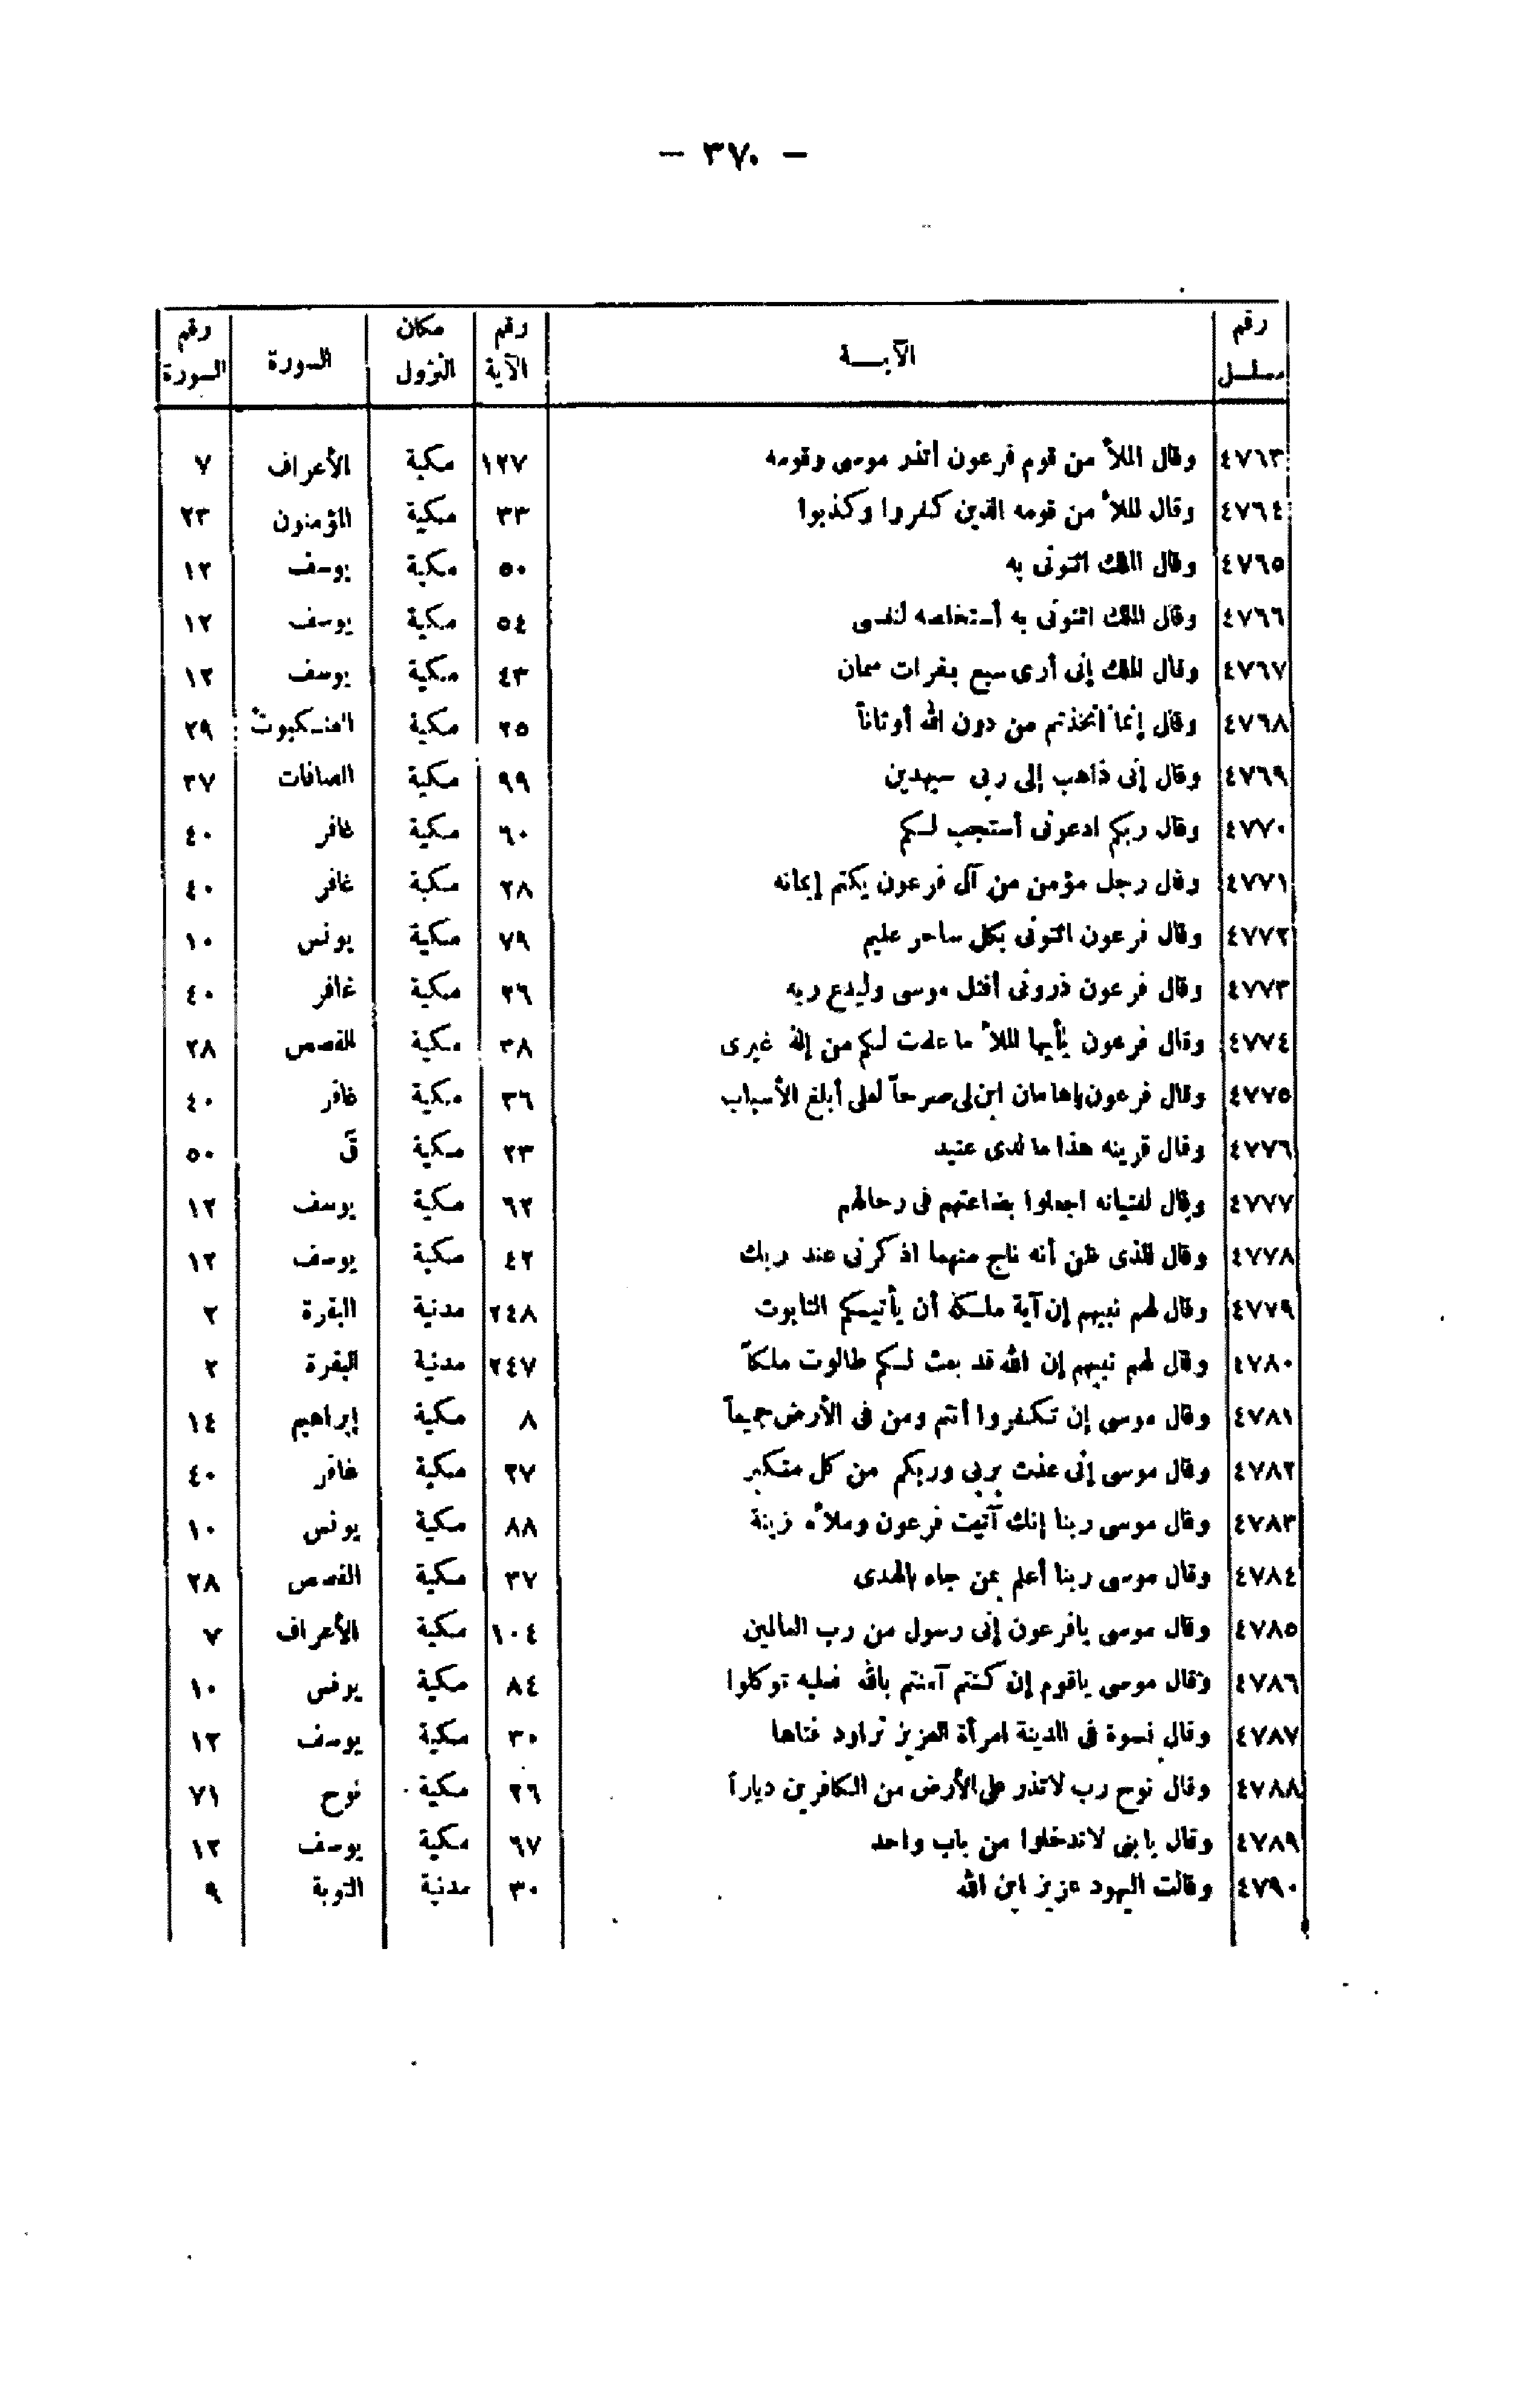 — ٣٧٠ —
رقم مسلسل الآيــة رقم الآية مكان النزول السورة رقم السورة
٤٧٦٣ وقال الملأ من قوم فرعون أتذر موسى وقومه ١٢٧ مكية الأعراف ٧
٤٧٦٤ وقال الملأ من قومه الذين كفروا وكذبوا ٣٣ مكية المؤمنون ٢٣
٤٧٦٥ وقال الملك ائتونى به ٥٠ مكية يوسف ١٢
٤٧٦٦ وقال الملك ائتونى به أستخلصه لنفسى ٥٤ مكية يوسف ١٢
٤٧٦٧ وقال الملك إنى أرى سبع بقرات سمان ٤٣ مكية يوسف ١٢
٤٧٦٨ وقال إنما اتخذتم من دون الله أوثاناً ٢٥ مكية العنكبوت ٢٩
٤٧٦٩ وقال إنى ذاهب إلى ربى سيهدين ٩٩ مكية الصافات ٣٧
٤٧٧٠ وقال ربكم ادعونى أستجب لكم ٦٠ مكية غافر ٤٠
٤٧٧١ وقال رجل مؤمن من آل فرعون يكتم إيمانه ٢٨ مكية غافر ٤٠
٤٧٧٢ وقال فرعون ائتونى بكل ساحر عليم ٧٩ مكية يونس ١٠
٤٧٧٣ وقال فرعون ذرونى أقتل موسى وليدع ربه ٢٦ مكية غافر ٤٠
٤٧٧٤ وقال فرعون يأيها الملأ ما علمت لكم من إله غيرى ٣٨ مكية القصص ٢٨
٤٧٧٥ وقال فرعون ياهامان ابن لى صرحاً لعلى أبلغ الأسباب ٣٦ مكية غافر ٤٠
٤٧٧٦ وقال قرينه هذا ما لدى عتيد ٢٣ مكية قٓ ٥٠
٤٧٧٧ وقال لفتيانه اجعلوا بضاعتهم فى رحالهم ٦٢ مكية يوسف ١٢
٤٧٧٨ وقال للذى ظن أنه ناج منهما اذكرنى عند ربك ٤٢ مكية يوسف ١٢
٤٧٧٩ وقال لهم نبيهم إن آية ملكه أن يأتيكم التابوت ٢٤٨ مدنية البقرة ٢
٤٧٨٠ وقال لهم نبيهم إن الله قد بعث لكم طالوت ملكاً ٢٤٧ مدنية البقرة ٢
٤٧٨١ وقال موسى إن تكفروا أنتم ومن فى الأرض جميعاً ٨ مكية إبراهيم ١٤
٤٧٨٢ وقال موسى إنى عذت بربى وربكم من كل متكبر ٢٧ مكية غافر ٤٠
٤٧٨٣ وقال موسى ربنا إنك آتيت فرعون وملأه زينة ٨٨ مكية يونس ١٠
٤٧٨٤ وقال موسى ربنا أعلم بمن جاء بالهدى ٣٧ مكية القصص ٢٨
٤٧٨٥ وقال موسى يافرعون إنى رسول من رب العالمين ١٠٤ مكية الأعراف ٧
٤٧٨٦ وقال موسى ياقوم إن كنتم آمنتم بالله فعليه توكلوا ٨٤ مكية يونس ١٠
٤٧٨٧ وقال نسوة فى المدينة امرأة العزيز تراود فتاها ٣٠ مكية يوسف ١٢
٤٧٨٨ وقال نوح رب لاتذر على الأرض من الكافرين دياراً ٢٦ مكية نوح ٧١
٤٧٨٩ وقال يابنى لاتدخلوا من باب واحد ٦٧ مكية يوسف ١٢
٤٧٩٠ وقالت اليهود عزيز ابن الله ٣٠ مدنية التوبة ٩